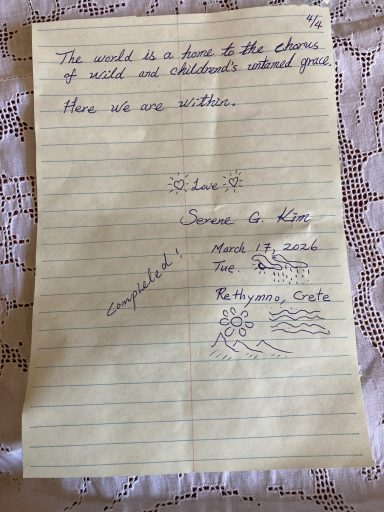 4/4
The world is a home to the chorus
of wild and childrend's untamed grace.
Here we are within.
Love
Serene G. Kim
March 17, 2026
Tue.
Rethymno, Crete
completed!